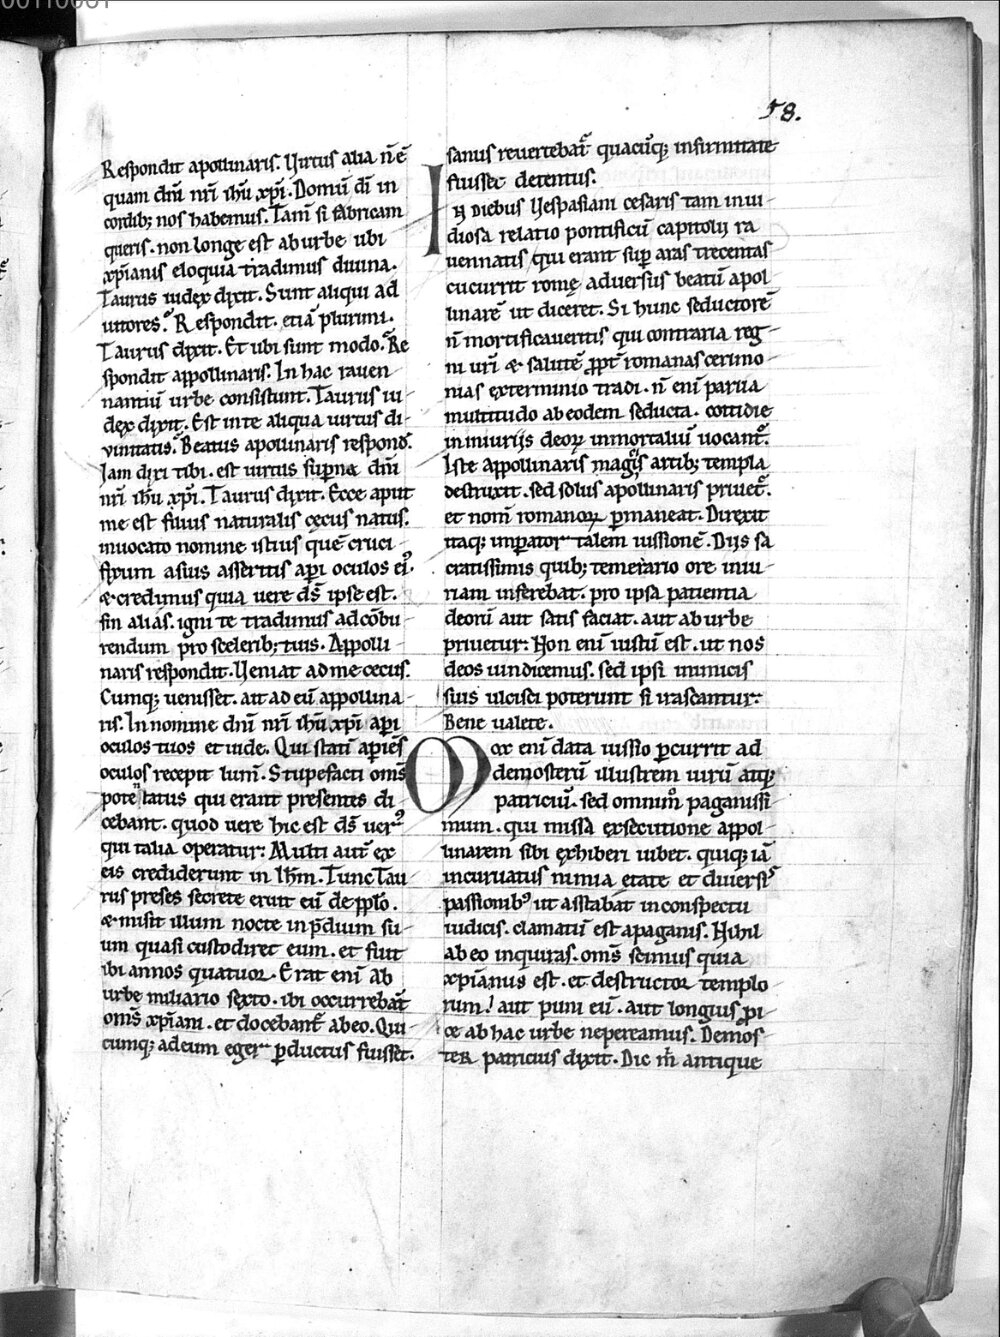 58.
Respondit apollinaris. Virtus alia n̄ ē
quam dn̄i nr̄i ihū xp̄i. Domū dī in
cordib; nos habemus. Tam̄ si fabricam
queris. non longe est ab urbe ubi
xp̄ianis eloquia tradimus diuina.
Taurus iudex dixit. Sunt aliqui ad
iutores. Respondit. etiā plurimi.
Taurus dixit. Et ubi sunt modo. Re
spondit appollinaris. In hac rauen
nantiū urbe consistunt. Taurus iu-
dex dixit. Est in te aliqua uirtus di-
uinitatis. Beatus apollinaris respond̄.
Iam dixi tibi. est uirtus superna dn̄i
nr̄i ihū xp̄i. Taurus dixit. Ecce aput
me est filius naturalis cecus natus.
inuocato nomine istius quē cruci-
fixum a suis asseritis apī oculos ei᾿.
& credimus quia uere ds̄ ipse est.
sin alias. igni te tradimus ad cōbu-
rendum pro scelerib; tuis. Appolli
naris respondit. Veniat ad me cecus.
Cumq; uenisset. ait ad eū appollina-
ris. In nomine dn̄i nr̄i ihū xp̄i apī
oculos tuos et uide. Qui statī apiēs
oculos recepit lum̄. Stupefacti oms̄
pote latus qui erant presentes di-
cebant. quod uere hic est ds̄ uer᾿
qui talia operatur: Multi aut̄ ex
eis crediderunt in ihm̄. Tunc Tau
rus preses secrete eruit eū de pplo.
& misit illum nocte in p̄dium su-
um quasi custodiret eum. et fuit
ibi annos quatuor. Erat eni ab
urbe miliario sexto. ibi occurrebāt
oms̄ xp̄iani. et docebant᾿ ab eo. Qui-
cumq; ad eum eger p̄ductus fuisset.
sanus reuertebat᾿ quacūq; infirmitate
fuisset detentus.
In diebus Vespasiani cesaris tam inui-
diosa relatio pontificū capitolij ra
uennatis qui erant sup̄ aras trecentas
cucurrit romę aduersus beatū apol
linarē ut diceret. Si hunc seductorē
n̄ mortificaueritis qui contraria reg-
ni urī & salutē ppt̄ romanas cerimo-
nias exterminio tradi. n̄ enī parua
multitudo ab eodem seducta. cottidie
in iniurijs deoꝝ inmortaliū uocant᾿.
Iste appollinaris magis artib; templa
destruxit. sed solus apollinaris priuet᾿.
et nom̄ romanoꝝ p̄maneat. Direxit
itaq; imperator talem iussionē. Dijs sa
cratissimis quib; temerario ore iniu-
riam inferebat. pro ipsa patientia
deorū aut satis faciat. aut ab urbe
priuetur: Non enī iustū est. ut nos
deos uindicemus. sed ipsi inimicis
suis ulcisci poterunt si irascantur:
Bene ualete.
Mox enī data iussio p̄currit ad
demosterū illustrem uirū atq;
patriciū. sed omnium paganissi
mum. qui missa exsecutione appol-
linarem sibi exhiberi iubet. quiq; iā
incuruatus nimia etate et diuersis
passionib᾿ ut astabat in conspectu
iudicis. clamatū est a paganis. Nihil
ab eo inquiras. oms̄ scimus quia
xp̄ianus est. et destructor templo
rum! aut puni eū. aut longius p̄i-
ce ab hac urbe ne pereamus. Demos-
ter patricius dixit. Dic m̄ antique